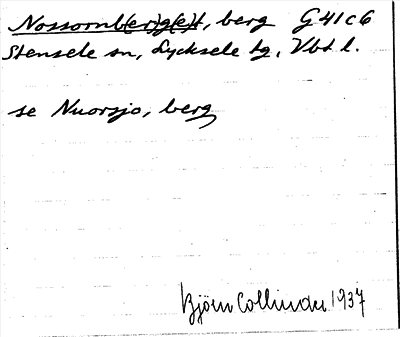 Nossornb(er)g(e)t, berg G41c6
Stensele sn, Lycksele tg, Vbt l.
se Nuorsjo, berg
Björn Collinder 1937